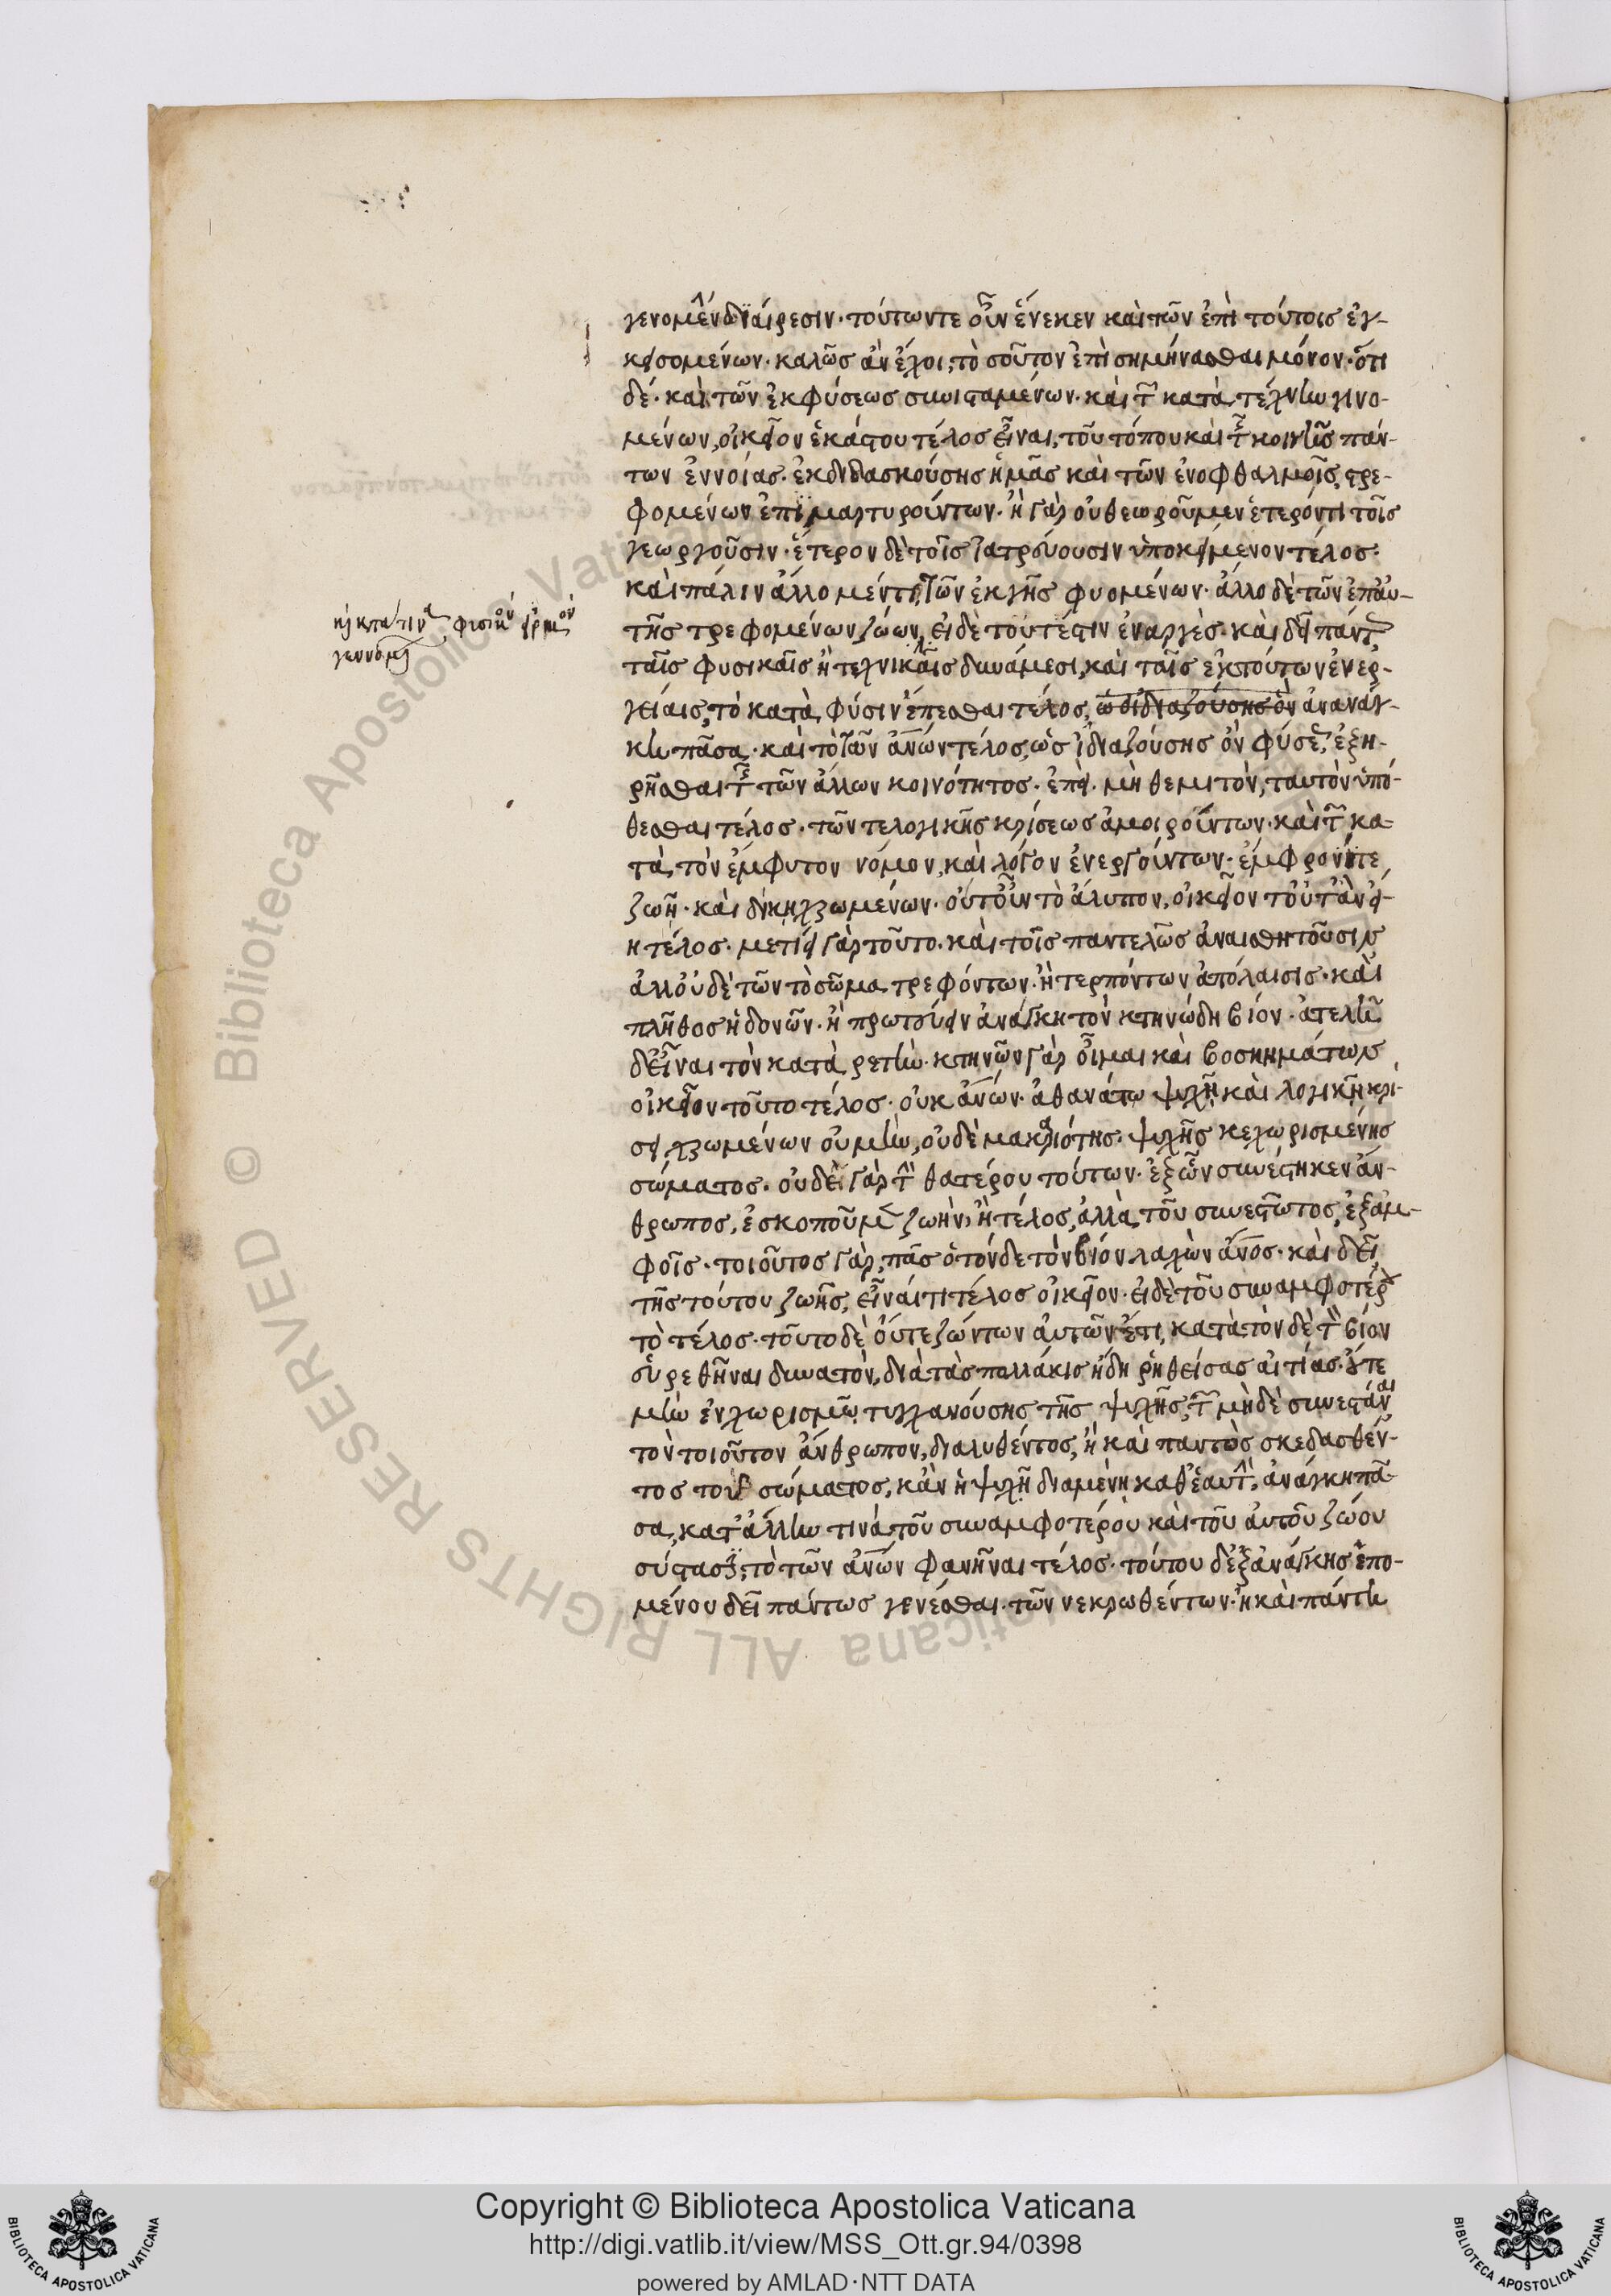 γενομένην διαίρεσιν· τούτων τε οὖν ἕνεκεν καὶ τῶν ἐπὶ τούτοις ἐγ-
κεισομένων· καλῶς ἂν ἔχοι, τὸσοῦτον ἐπὶσημήνασθαι μόνον· ὅτι
δέ· καὶ τῶν ἐκ φύσεως συνισταμένων· καὶ τῶν κατὰ τέχνην γινο-
μένων, οἰκεῖον ἑκάστου τέλος εἶναι, τοῦ τόπου καὶ τῆς κοινῆς πάν-
των ἐννοίας· ἐκδιδασκούσης ἡμᾶς καὶ τῶν ἐν ὀφθαλμοῖς στρε-
φομένων ἐπιμαρτυρούντων· ἢ γὰρ οὐ θεωροῦμεν ἕτερόν τι τοῖς
γεωργοῦσιν· ἕτερον δὲ τοῖς ἰατρεύουσιν ὑποκείμενον τέλος·
καὶ πάλιν ἄλλο μέν τι, τῶν ἐκ γῆς φυομένων· ἄλλο δὲ τῶν ἐπ' αὐ-
τῆς τρεφομένων ζώων, εἰ δὲ τοῦτ' ἐστιν ἐναργὲς· καὶ δεῖ πάντως
ταῖς φυσικαῖς ἢ τεχνικαῖς δυνάμεσι, καὶ ταῖς ἐκ τούτων ἐνερ-
γείαις, τὸ κατὰ φύσιν ἕπεσθαι τέλος, ὡς ἰδιαζούσης ὂν ἀνανάγ-
κη πᾶσα· καὶ τὸ τῶν ἀνων τέλος, ὡς ἰδιαζούσης ὂν φύσεως, ἐξη-
ρῆσθαι τῆς τῶν ἄλλων κοινότητος· ἐπεὶ μὴ θεμιτὸν, ταυτὸν ὑπό-
θεσθαι τέλος· τῶν τε λογικῆς κρίσεως ἀμοιρούντων· καὶ τῶν κα-
τὰ τὸν ἔμφυτον νόμον, καὶ λόγον ἐνεργούντων· ἔμφρονί τε
ζωῇ· καὶ δίκῃ χρωμένων· οὔτ' οὖν τὸ ἄλυπον, οἰκεῖον τούτων ἂν εἴ-
η τέλος· μετείη γὰρ τοῦτο· καὶ τοῖς παντελῶς ἀναισθητοῦσιν
ἀλλ' οὐδὲ τῶν τὸ σῶμα τρεφόντων· ἢ τερπόντων ἀπόλαυσις· καὶ
πλῆθος ἡδονῶν· ἢ πρωτεύειν ἀνάγκη τὸν κτηνώδη βίον· ἀτελῆ
δὲ εἶναι τὸν κατ' ἀρετὴν· κτηνῶν γὰρ οἶμαι καὶ βοσκημάτων
οἰκεῖον τοῦτο τέλος· οὐκ ἀνων· ἀθανάτω ψυχῇ καὶ λογικῇ κρί-
σει χρωμένων οὐ μὴν, οὐδὲ μακαριότης· ψυχῆς κεχωρισμένης
σώματος· οὐδὲ γὰρ τὴν θατέρου τούτων· ἐξ ὧν συνέστηκεν ἄν-
θρωπος, ἐσκοποῦμεν ζωὴν, ἢ τέλος, ἀλλὰ τοῦ συνεστῶτος, ἐξ ἀμ-
φοῖν· τοιοῦτος γὰρ, πᾶς ὁ τόνδε τὸν βίον λαχὼν ἀνος· καὶ δεῖ,
τῆς τούτου ζωῆς, εἶναί τι τέλος οἰκεῖον· εἰ δὲ τοῦ συναμφοτέρου
τὸ τέλος· τοῦτο δὲ οὔτε ζώντων αὐτῶν ἔτι, κατὰ τόνδε τὸν βίον
εὑρεθῆναι δυνατὸν, διὰ τὰς πολλάκις ἤδη ῥηθείσας αἰτίας· οὔτε
μὴν ἐν χωρισμῷ τυγχανούσης τῆς ψυχῆς, τῷ μὴ δὲ συνεστάναι
τὸν τοιοῦτον ἄνθρωπον, διαλυθέντος, ἢ καὶ παντὸς σκεδασθέν-
τος τοῦ σώματος, κἂν ἡ ψυχὴ διαμένη καθ' ἑαυτὴν, ἀνάγκη πᾶ-
σα, κατ' ἄλλην τινὰ τοῦ συναμφοτέρου καὶ τοῦ αὐτοῦ ζώου
σύστασιν, τὸ τῶν ἀνων φανῆναι τέλος· τούτου δ' ἐξ ἀνάγκης ἑπο-
μένου δεῖ πάντως γενέσθαι· τῶν νεκρωθέντων· ἢ καὶ πάντη